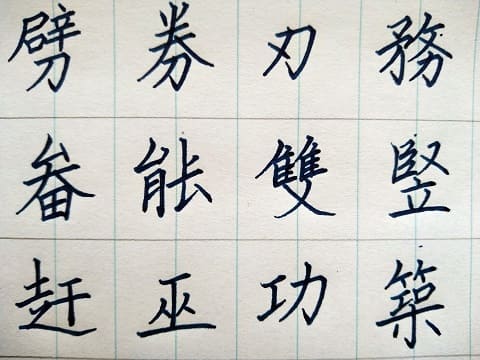 劈券刃務
畚能雙豎
赶巫功築